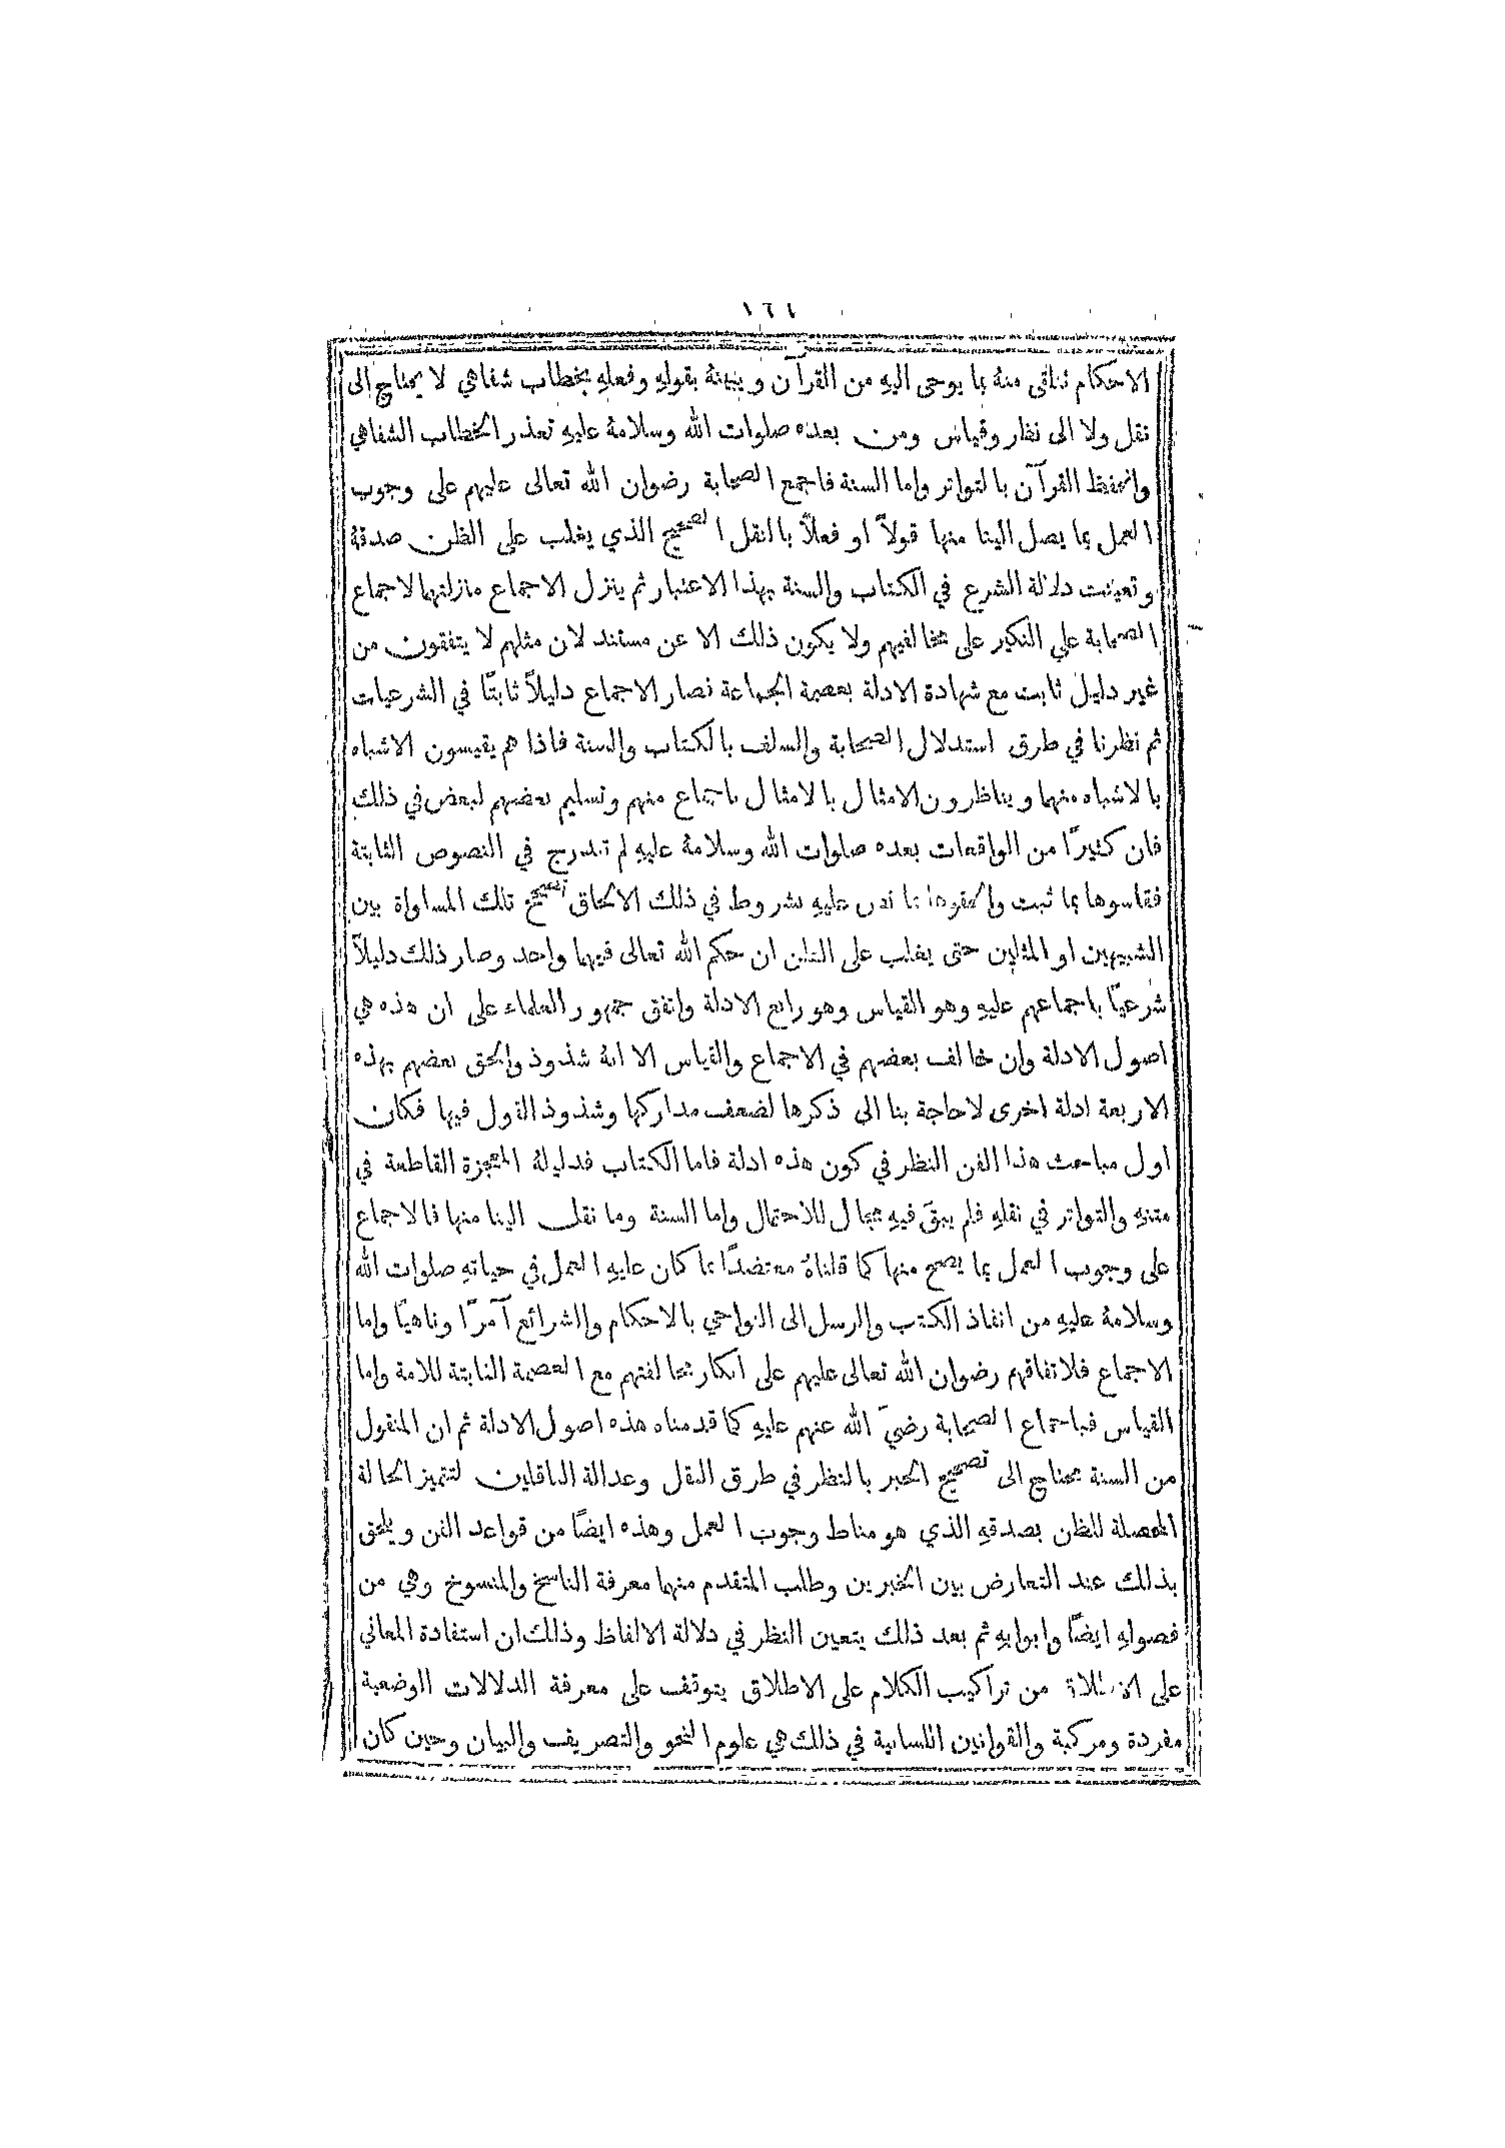 الاحكام تتلقى منهُ بما يوحى اليهِ من القرآن ويبينهُ بقولهِ وفعلهِ بخطاب شفاهي لا يحتاج الى
نقل ولا الى نظر وقياس ومن بعده صلوات الله وسلامهُ عليهِ تعذر الخطاب الشفاهي
وانحفظ القرآن بالتواتر واما السنة فاجمع الصحابة رضوان الله تعالى عليهم على وجوب
العمل بما يصل الينا منها قولاً او فعلاً بالنقل الصحيح الذي يغلب على الظن صدقهُ
وتعينت دلالة الشرع في الكتاب والسنة بهذا الاعتبار ثم ينزل الاجماع منزلتهما لاجماع
الصحابة على النكير على مخالفيهم ولا يكون ذلك الا عن مستند لان مثلهم لا يتفقون من
غير دليل ثابت مع شهادة الادلة بعصمة الجماعة فصار الاجماع دليلاً ثابتًا في الشرعيات
ثم نظرنا في طرق استدلال الصحابة والسلف بالكتاب والسنة فاذا هم يقيسون الاشباه
بالاشباه منهما ويناظرون الامثال بالامثال باجماع منهم وتسليم بعضهم لبعض في ذلك
فان كثيرًا من الواقعات بعده صلوات الله وسلامهُ عليهِ لم تندرج في النصوص الثابتة
فقاسوها بما ثبت والحقوها بما نص عليهِ بشروط في ذلك الالحاق تصحح تلك المساواة بين
الشبيهين او المثلين حتى يغلب على الظن ان حكم الله تعالى فيهما واحد وصار ذلك دليلاً
شرعيًا باجماعهم عليهِ وهو القياس وهو رابع الادلة واتفق جمهور العلماء على ان هذه هي
اصول الادلة وان خالف بعضهم في الاجماع والقياس الا انهُ شذوذ والحق بعضهم بهذه
الاربعة ادلة اخرى لا حاجة بنا الى ذكرها لضعف مداركها وشذوذ القول فيها فكان
اول مباحث هذا الفن النظر في كون هذه ادلة فاما الكتاب فدليلهُ المعجزة القاطعة في
متنهِ والتواتر في نقلهِ فلم يبقَ فيهِ مجال للاحتمال واما السنة وما نقل الينا منها فالاجماع
على وجوب العمل بما يصح منها كما قلناهُ معتضدًا بما كان عليهِ العمل في حياتهِ صلوات الله
وسلامهُ عليهِ من انفاذ الكتب والرسل الى النواحي بالاحكام والشرائع آمرًا وناهيًا واما
الاجماع فلاتفاقهم رضوان الله تعالى عليهم على انكار مخالفتهم مع العصمة الثابتة للامة واما
القياس فباجماع الصحابة رضيَ الله عنهم عليهِ كما قدمناه هذه اصول الادلة ثم ان المنقول
من السنة محتاج الى تصحيح الخبر بالنظر في طرق النقل وعدالة الناقلين لتتميز الحالة
المحصلة للظن بصدقهِ الذي هو مناط وجوب العمل وهذه ايضًا من قواعد الفن ويلحق
بذلك عند التعارض بين الخبرين وطلب المتقدم منهما معرفة الناسخ والمنسوخ وهي من
فصولهِ ايضًا وابوابهِ ثم بعد ذلك يتعين النظر في دلالة الالفاظ وذلك ان استفادة المعاني
على الاطلاق من تراكيب الكلام على الاطلاق يتوقف على معرفة الدلالات الوضعية
مفردة ومركبة والقوانين اللسانية في ذلك هي علوم النحو والتصريف والبيان وحين كان